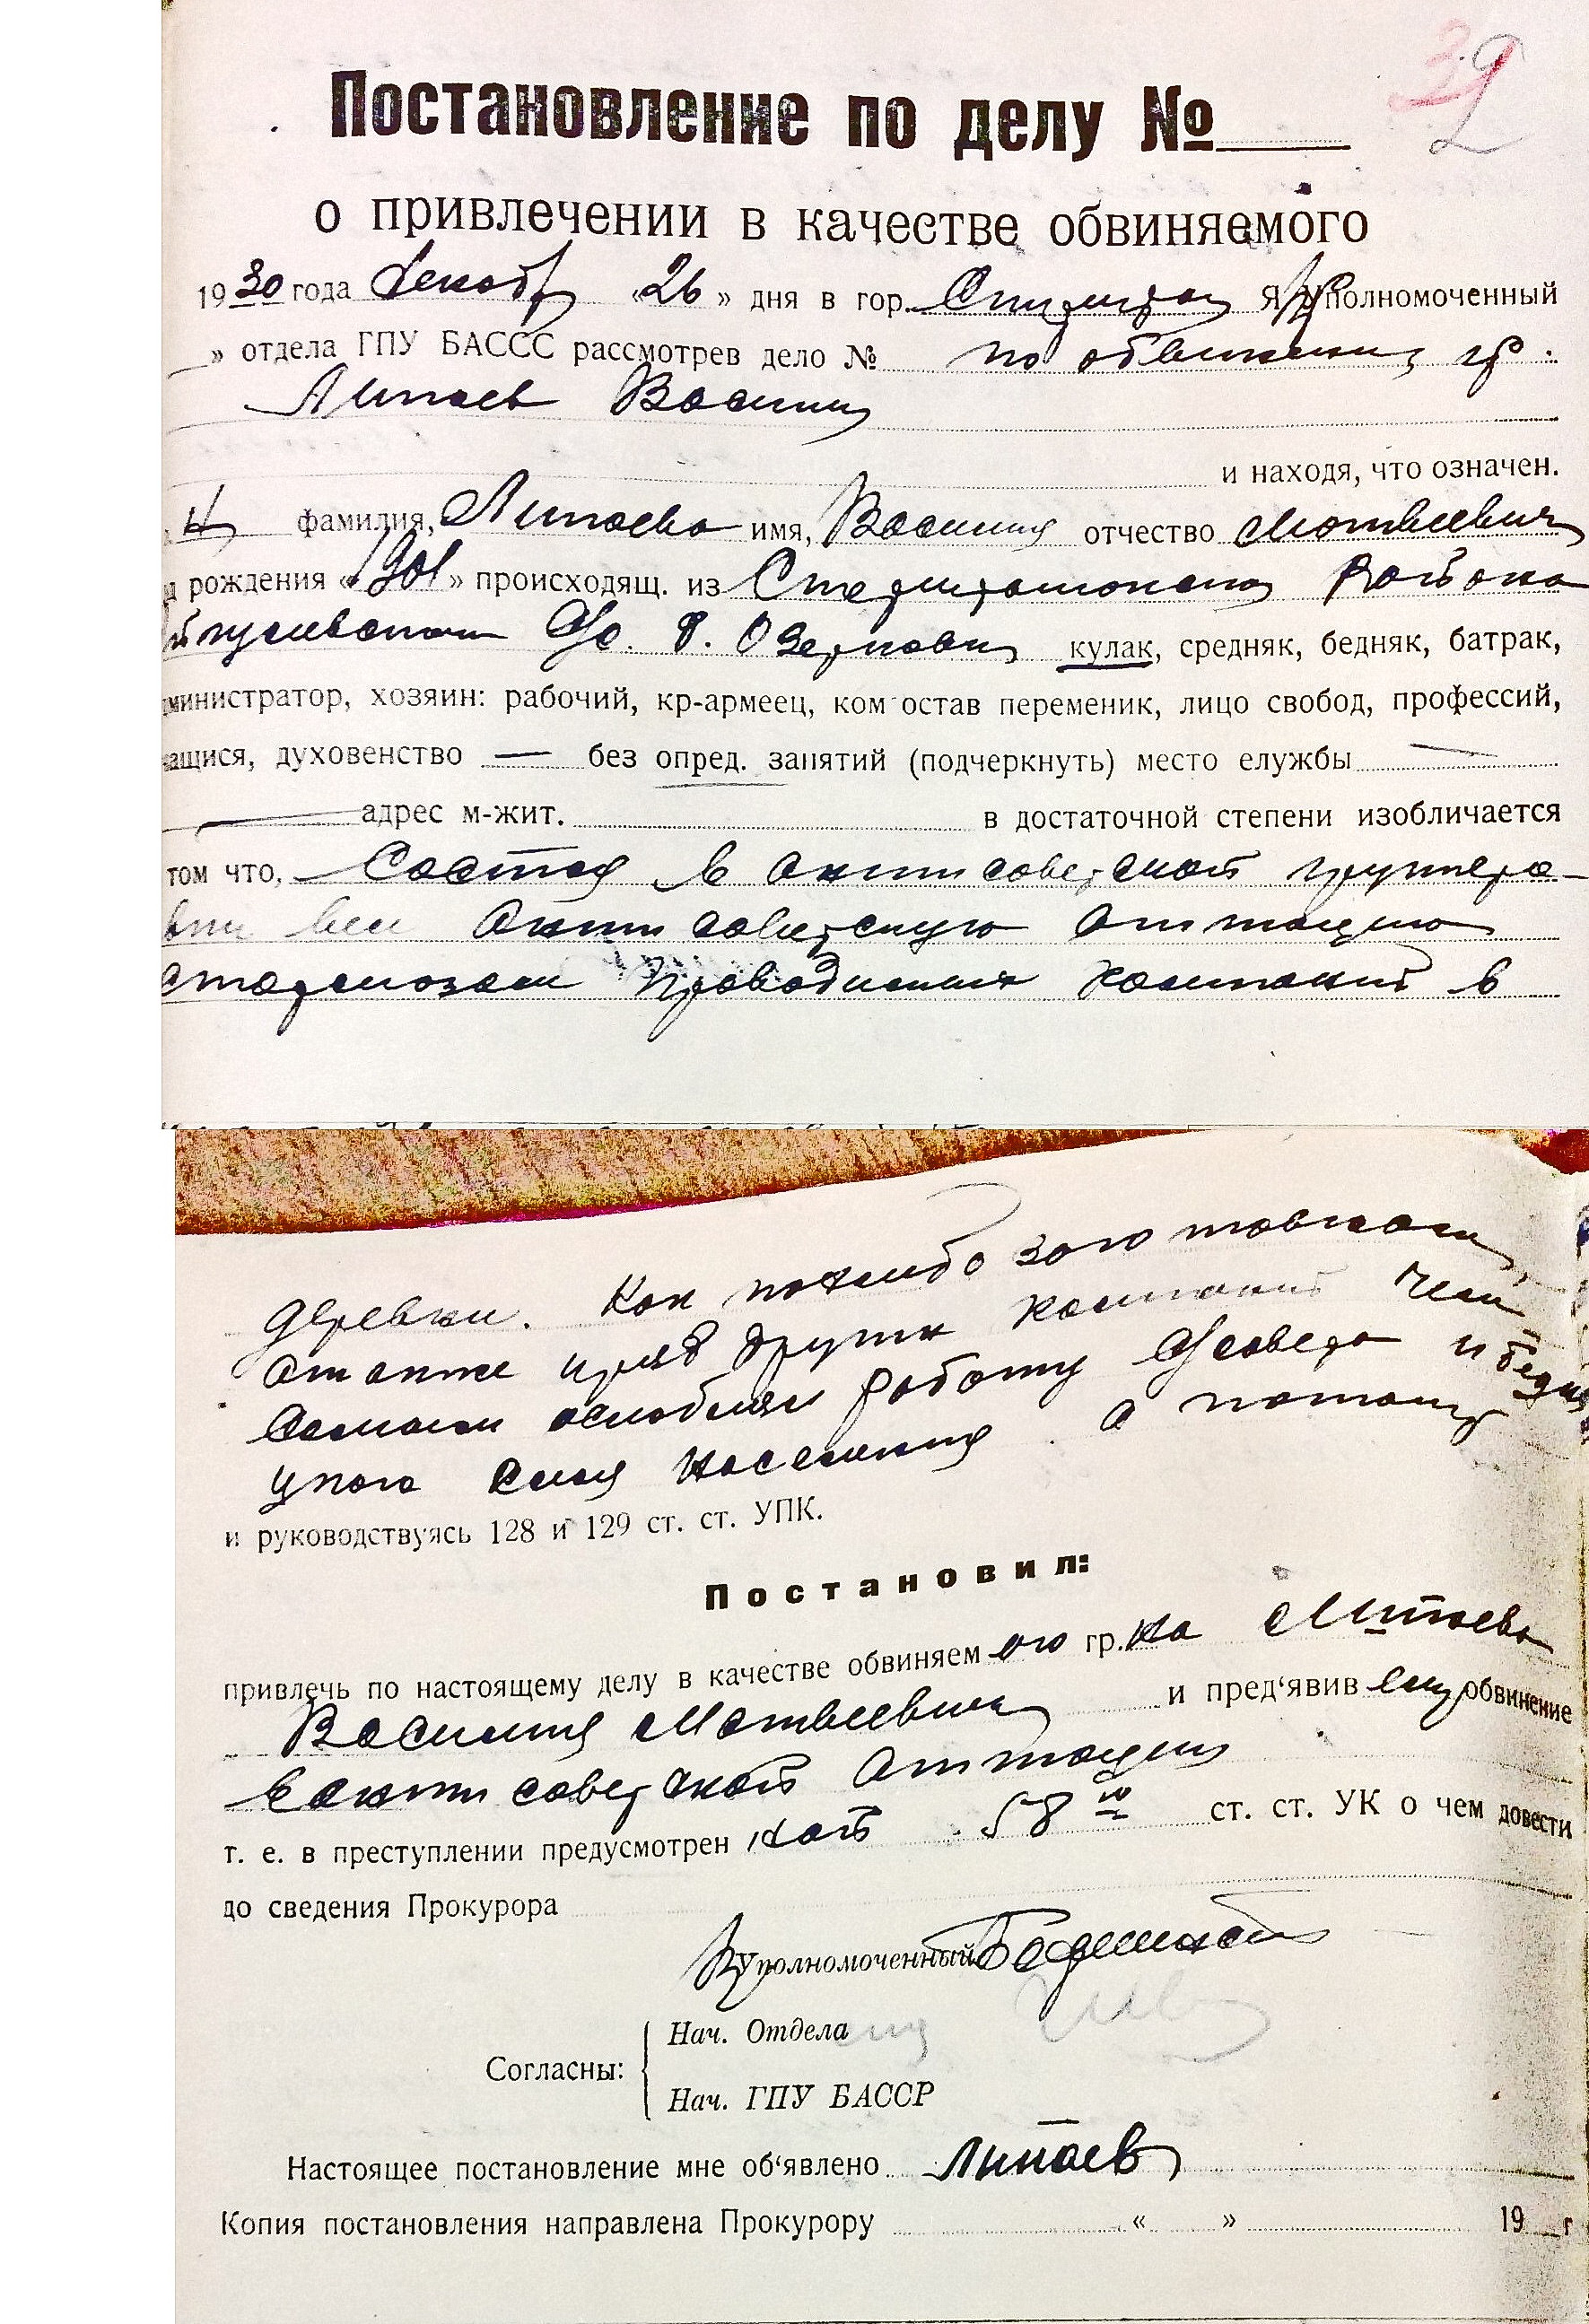 32
Постановление по делу №
о привлечении в качестве обвиняемого
1930 года Декабр «26» дня в гор. Я Уполномоченный
» отдела ГПУ БАССС рассмотрев дело № по обвинению гр.
Липаев Василий
и находя, что означен.
й фамилия, Липаева имя, Василия отчество Матвеевич
рождения «901» происходящ. из Стерлитамакского Района
С/С. д. Озерковки кулак, средняк, бедняк, батрак,
министратор, хозяин: рабочий, кр-армеец, ком остав переменик, лицо свобод, профессий,
ащися, духовенство — без опред. занятий (подчеркнуть) место елужбы —
адрес м-жит. в достаточной степени изобличается
том что, Состоя в антисоветской группиро-
вки вел Антисоветскую агитацию
проводимых кампаний в
деревни. Как то хлебозаготовками,
а также и ряд других кампаний чем
самым ослаблял работу С/совета и бедня
цкого слоя населения. а потому
и руководствуясь 128 и 129 ст. ст. УПК.
Постановил:
привлечь по настоящему делу в качестве обвиняемого гр. на Липаева
Василия Матвеевича и пред‘явив ему обвинение
в антисоветской Агитации
т. е. в преступлении предусмотрен ной 58 10 ст. ст. УК о чем довести
до сведения Прокурора
Уполномоченный
Нач. Отдела
Согласны:
Нач. ГПУ БАССР
Настоящее постановление мне об‘явлено Липаев
Копия постановления направлена Прокурору « » 19 г